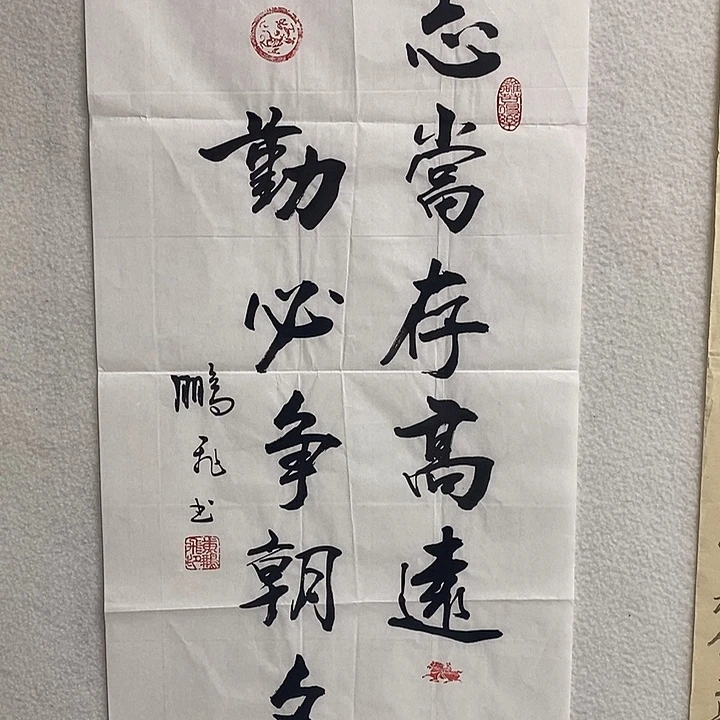 志當存高遠
勤必争朝夕
鵬飛书